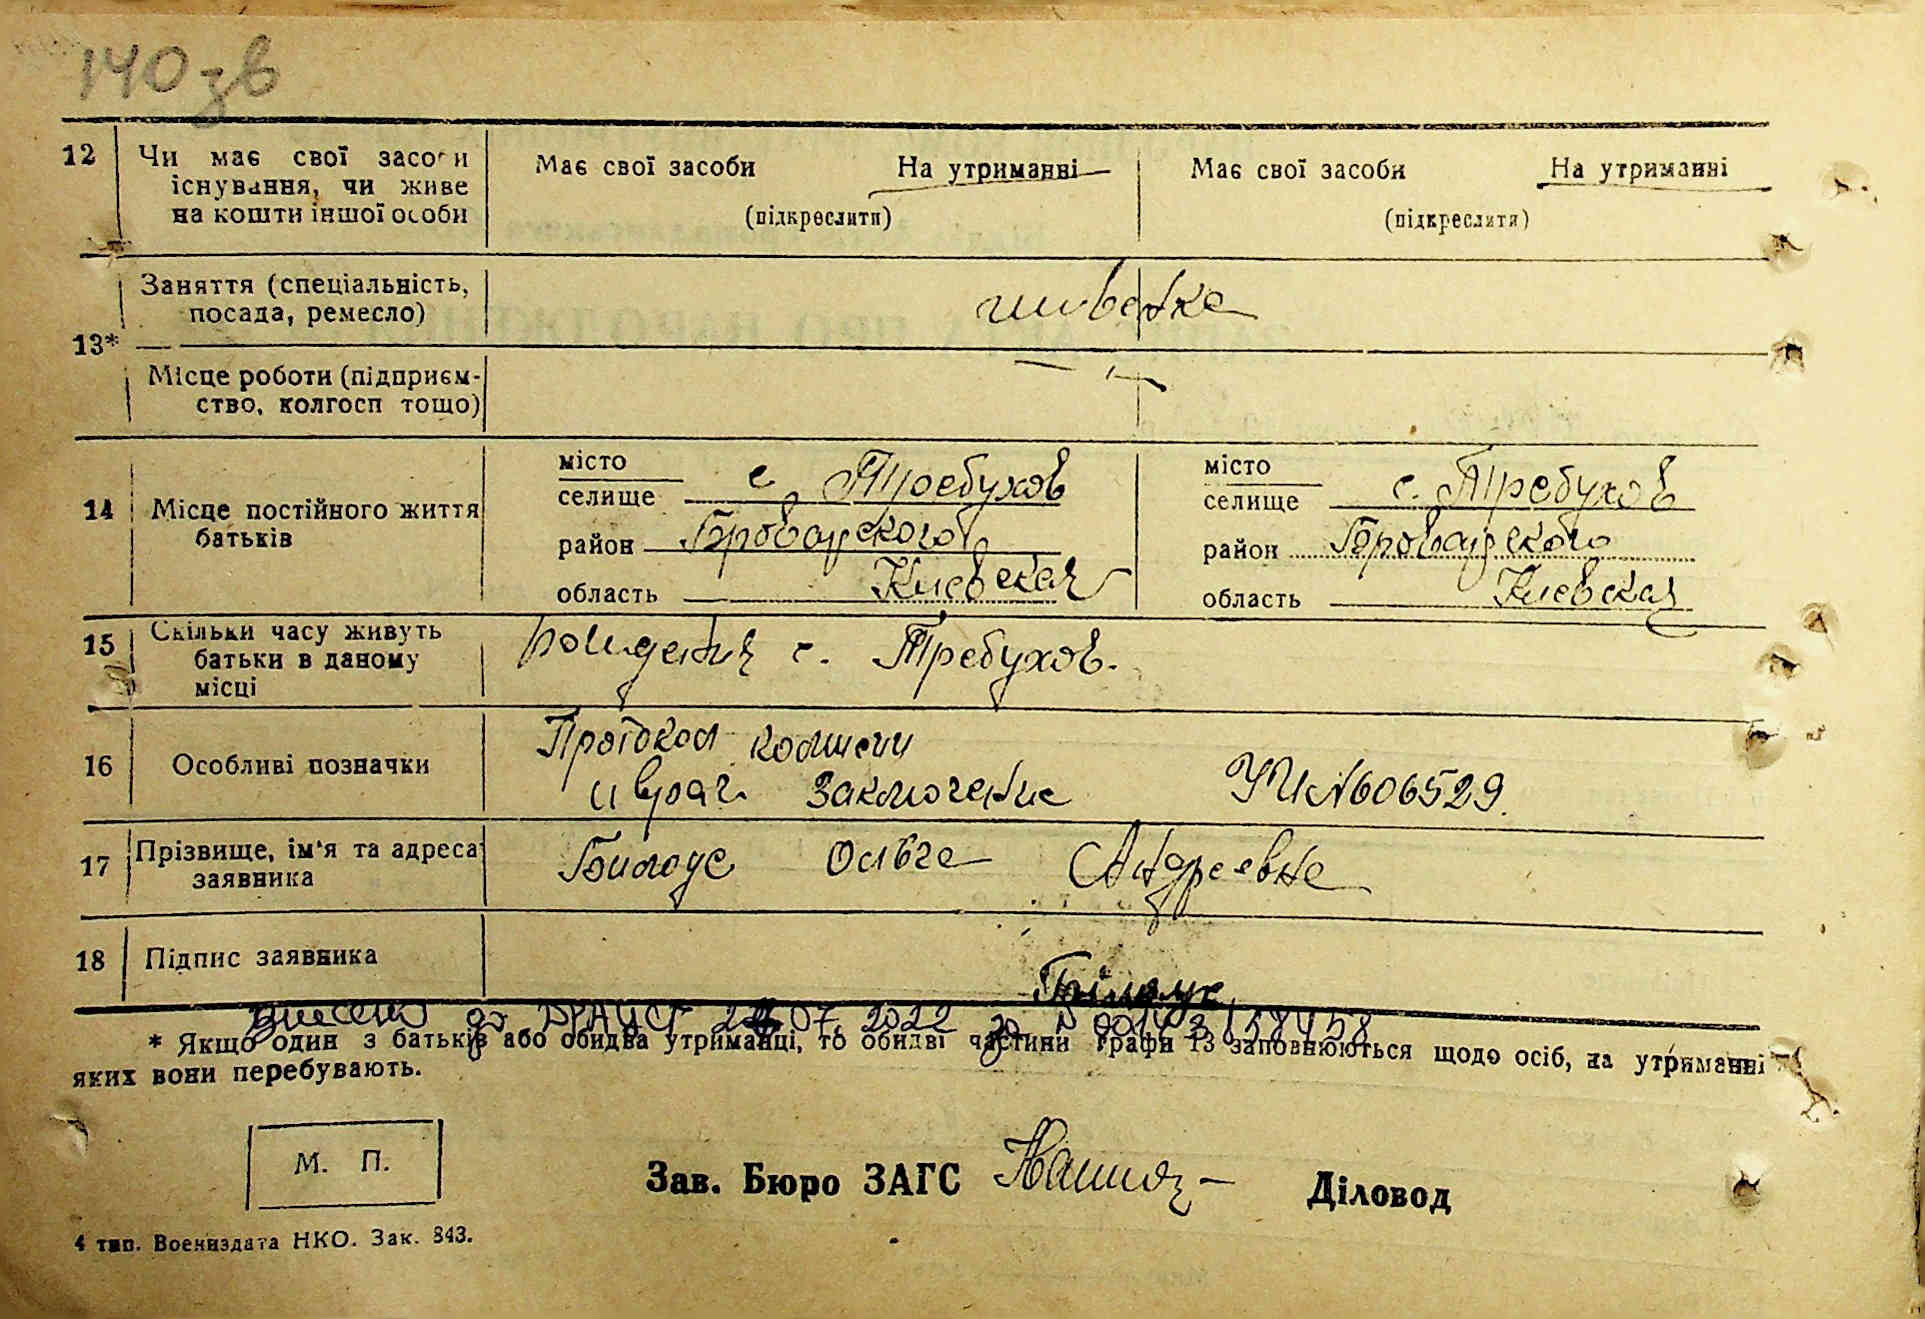 140 зв
12 Чи має свої засоби Має свої засоби На утриманні Має свої засоби На утриманні
існування, чи живе
на кошти іншої особи (підкреслити) (підкреслити)
Заняття (спеціальність,
посада, ремесло)
13*
Місце роботи (підприєм-
ство, колгосп тощо)
місто місто
селище с. Требухов селище с. Требухов
14 Місце постійного життя
батьків
район Броварского район Броварского
область Киевская область Киевская
15 Скільки часу живуть
батьки в даному с. Требухов.
місці
Протокол комисии
16 Особливі позначки и врач. заключение УЧ №606529.
17 Прізвище, ім'я та адреса Андреевне
заявника
18 Підпис заявника
внесено до ДРАЦСГ 07. 2022 за №
* Якщо один з батьків або обидва утриманці, то обидві частини графи 13 заповнюються щодо осіб, на утриманні
яких вони перебувають.
М. П.
Зав. Бюро ЗАГС Діловод
4 тип. Воениздата НКО. Зак. 843.